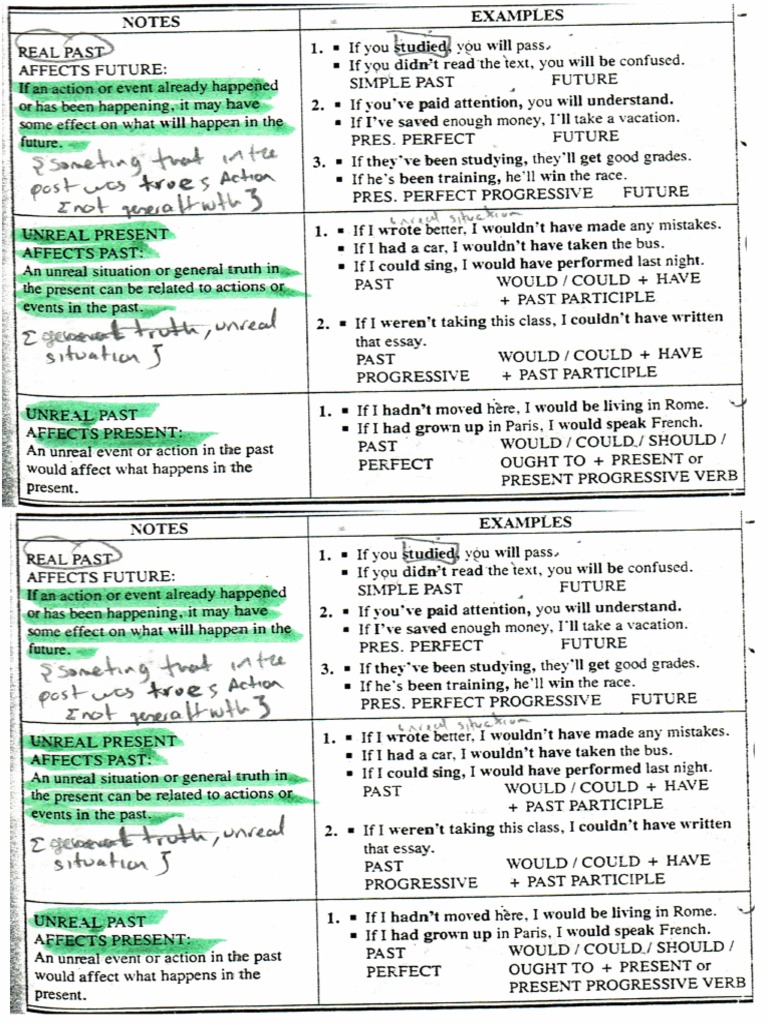 NOTES
EXAMPLES
REAL PAST
AFFECTS FUTURE:
If an action or event already happened
or has been happening, it may have
some effect on what will happen in the
future.
someting that in the
past was true Action
not general twth
1. ▪ If you studied, you will pass.
▪ If you didn't read the text, you will be confused.
SIMPLE PAST FUTURE
2. ▪ If you've paid attention, you will understand.
▪ If I've saved enough money, I'll take a vacation.
PRES. PERFECT FUTURE
3. ▪ If they've been studying, they'll get good grades.
▪ If he's been training, he'll win the race.
PRES. PERFECT PROGRESSIVE FUTURE
UNREAL PRESENT
AFFECTS PAST:
An unreal situation or general truth in
the present can be related to actions or
events in the past.
truth, unreal
situation
unreal situation
1. ▪ If I wrote better, I wouldn't have made any mistakes.
▪ If I had a car, I wouldn't have taken the bus.
▪ If I could sing, I would have performed last night.
PAST WOULD / COULD + HAVE
+ PAST PARTICIPLE
2. ▪ If I weren't taking this class, I couldn't have written
that essay.
PAST WOULD / COULD + HAVE
PROGRESSIVE + PAST PARTICIPLE
UNREAL PAST
AFFECTS PRESENT:
An unreal event or action in the past
would affect what happens in the
present.
1. ▪ If I hadn't moved here, I would be living in Rome.
▪ If I had grown up in Paris, I would speak French.
PAST WOULD / COULD / SHOULD /
PERFECT OUGHT TO + PRESENT or
PRESENT PROGRESSIVE VERB
NOTES
EXAMPLES
REAL PAST
AFFECTS FUTURE:
If an action or event already happened
or has been happening, it may have
some effect on what will happen in the
future.
someting that in the
past was true Action
not general twth
1. ▪ If you studied, you will pass.
▪ If you didn't read the text, you will be confused.
SIMPLE PAST FUTURE
2. ▪ If you've paid attention, you will understand.
▪ If I've saved enough money, I'll take a vacation.
PRES. PERFECT FUTURE
3. ▪ If they've been studying, they'll get good grades.
▪ If he's been training, he'll win the race.
PRES. PERFECT PROGRESSIVE FUTURE
UNREAL PRESENT
AFFECTS PAST:
An unreal situation or general truth in
the present can be related to actions or
events in the past.
truth, unreal
situation
unreal situation
1. ▪ If I wrote better, I wouldn't have made any mistakes.
▪ If I had a car, I wouldn't have taken the bus.
▪ If I could sing, I would have performed last night.
PAST WOULD / COULD + HAVE
+ PAST PARTICIPLE
2. ▪ If I weren't taking this class, I couldn't have written
that essay.
PAST WOULD / COULD + HAVE
PROGRESSIVE + PAST PARTICIPLE
UNREAL PAST
AFFECTS PRESENT:
An unreal event or action in the past
would affect what happens in the
present.
1. ▪ If I hadn't moved here, I would be living in Rome.
▪ If I had grown up in Paris, I would speak French.
PAST WOULD / COULD / SHOULD /
PERFECT OUGHT TO + PRESENT or
PRESENT PROGRESSIVE VERB